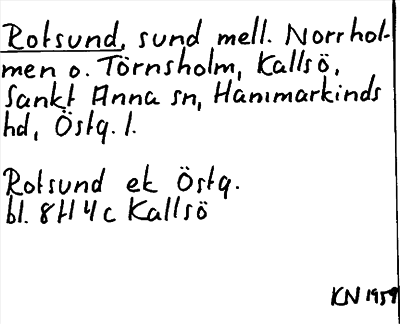 Rotsund, sund mell. Norrhol-
men o. Törnsholm, Kallsö,
Sankt Anna sn, Hammarkinds
hd, Östg. l.
Rotsund ek Östg.
bl. 8H 4c Kallsö
KN 1959